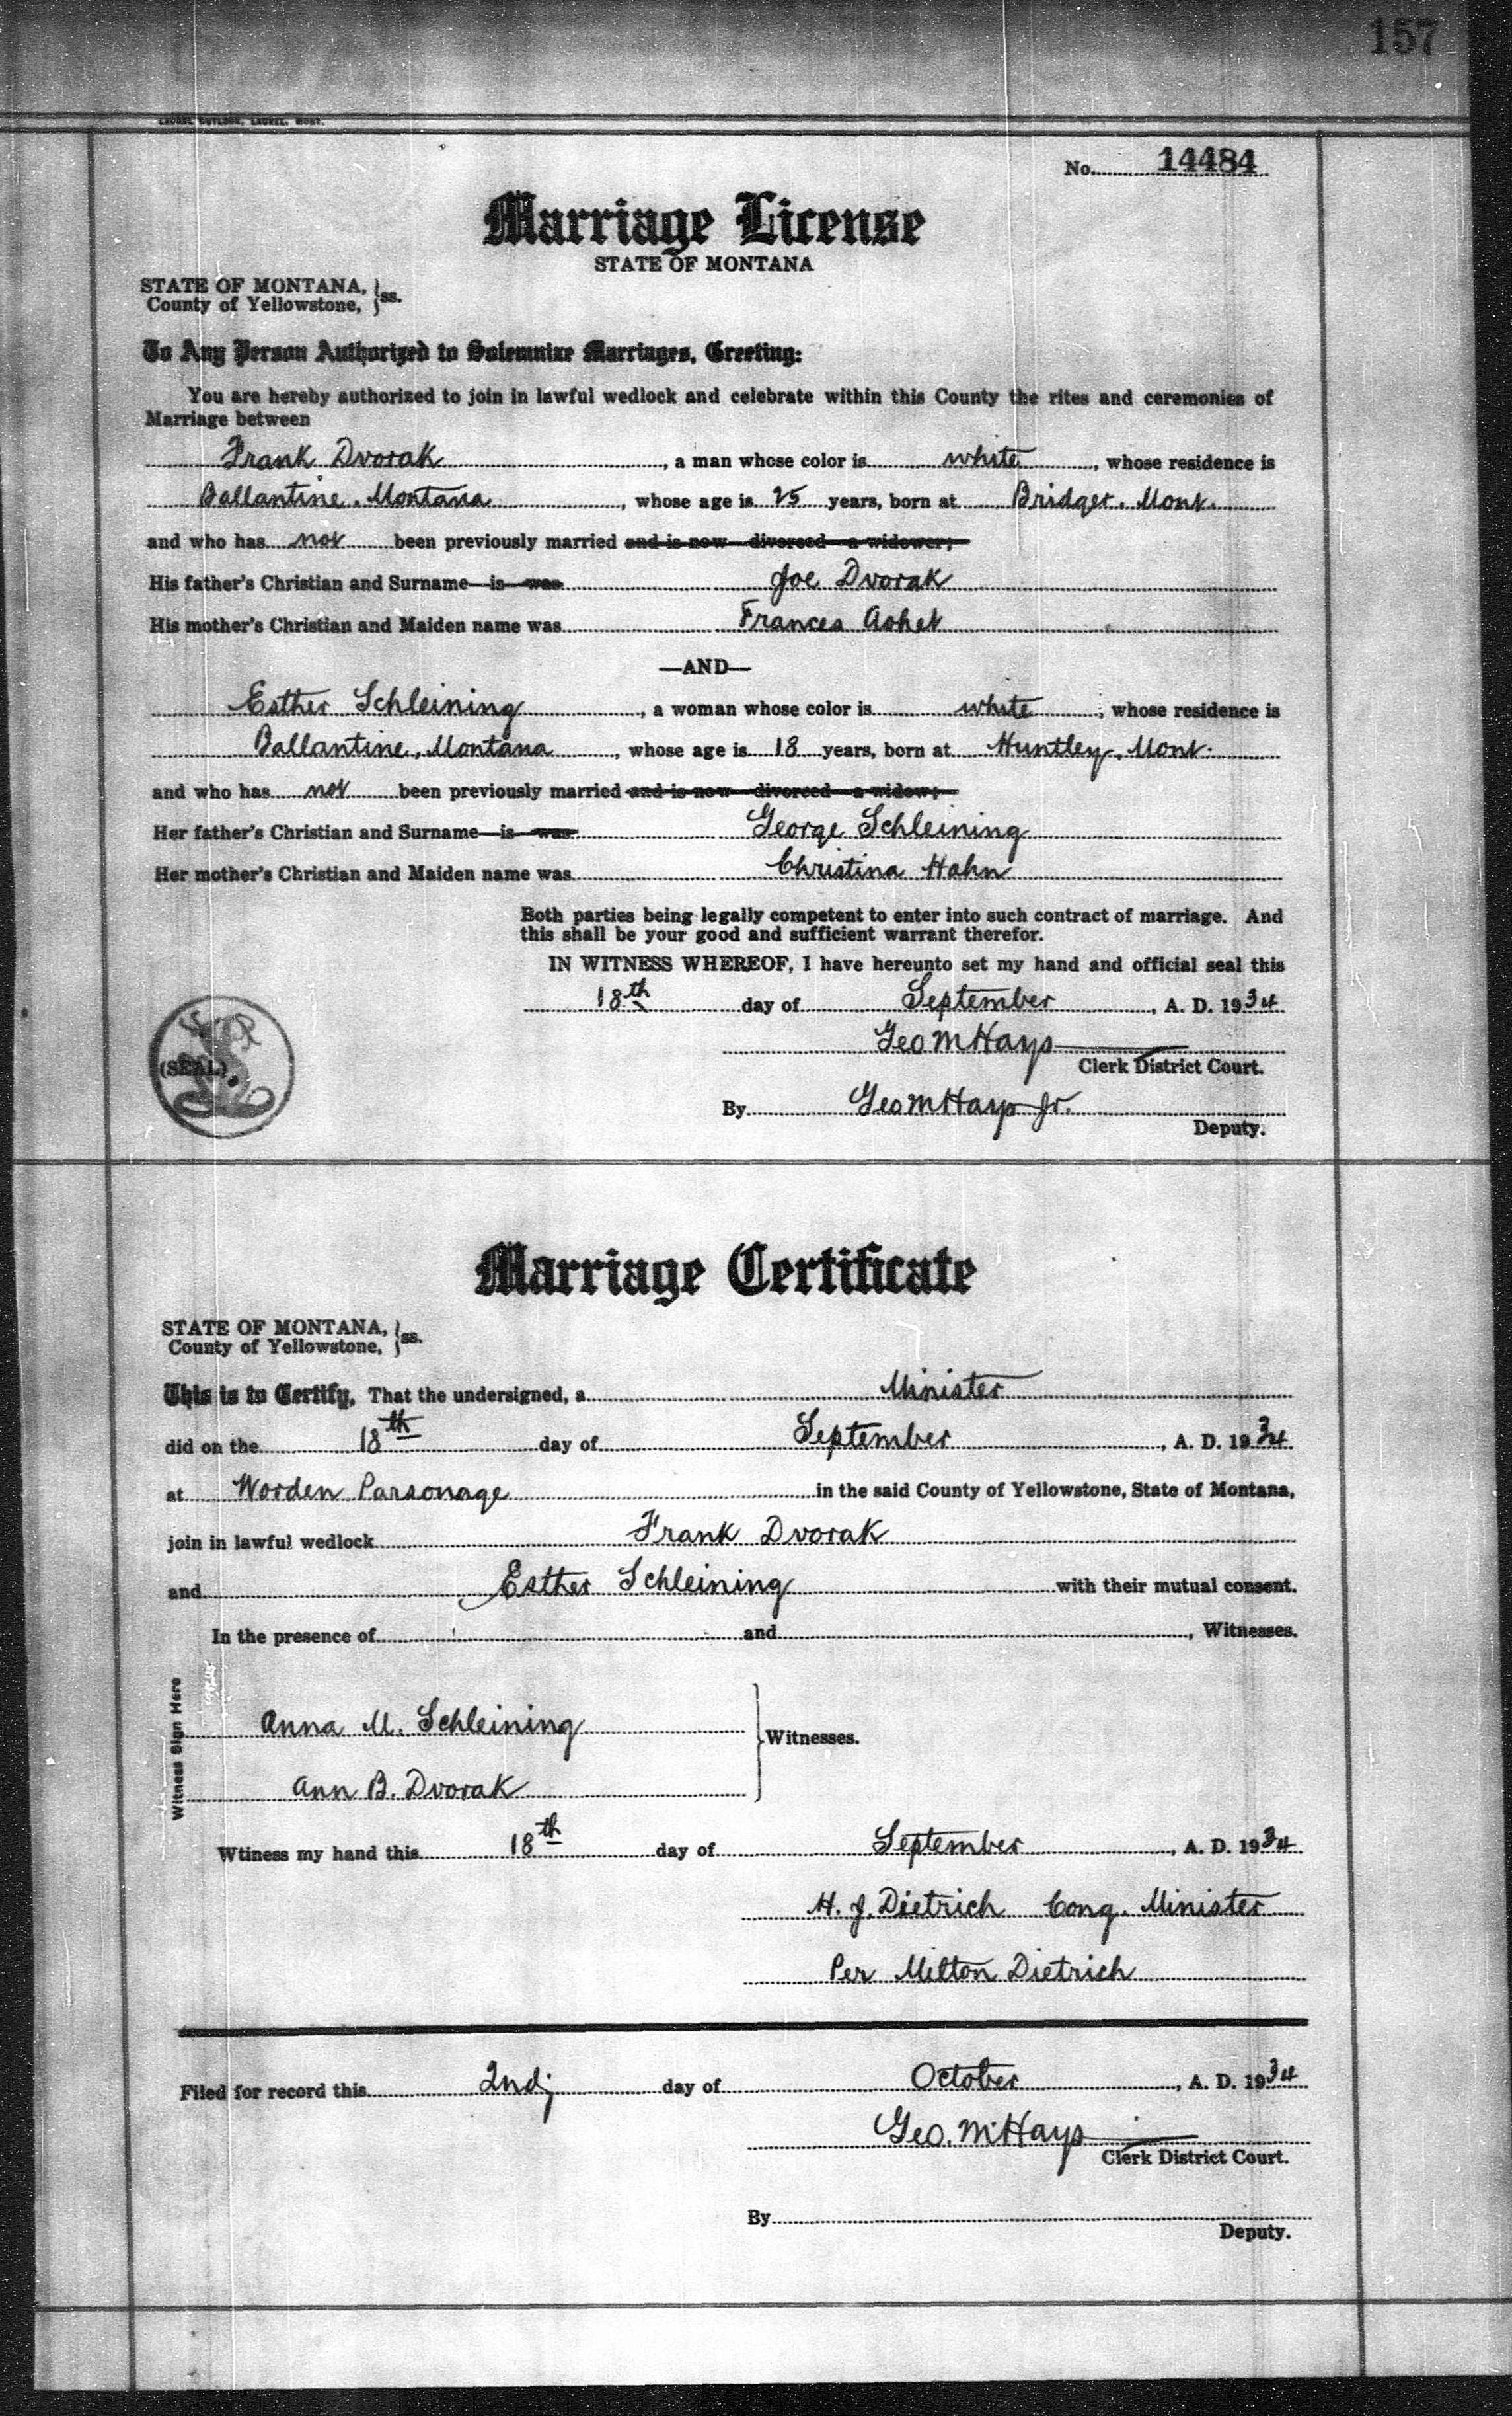 157
LAUREL OUTLOOK, LAUREL, MONT.
No. 14484
Marriage License
STATE OF MONTANA
STATE OF MONTANA,
County of Yellowstone, } ss.
To Any Person Authorized to Solemnize Marriages, Greeting:
You are hereby authorized to join in lawful wedlock and celebrate within this County the rites and ceremonies of
Marriage between
Frank Dvorak, a man whose color is white, whose residence is
Ballantine, Montana, whose age is 25 years, born at Bridger, Mont.
and who has not been previously married and is now—divorced—a widower;
His father's Christian and Surname—is—was Joe Dvorak
His mother's Christian and Maiden name was Frances
—AND—
Esther Schleining, a woman whose color is white; whose residence is
Ballantine, Montana, whose age is 18 years, born at Huntley, Mont.
and who has not been previously married and is now—divorced—a widow;
Her father's Christian and Surname—is—was George Schleining
Her mother's Christian and Maiden name was Christina Hahn
Both parties being legally competent to enter into such contract of marriage. And
this shall be your good and sufficient warrant therefor.
IN WITNESS WHEREOF, I have hereunto set my hand and official seal this
18th day of September, A. D. 1934
Geo M Hays
Clerk District Court.
(SEAL)
By Geo M Hays Jr.
Deputy.
Marriage Certificate
STATE OF MONTANA,
County of Yellowstone, } ss.
This is to Certify, That the undersigned, a Minister
did on the 18th day of September, A. D. 1934
at Worden Parsonage in the said County of Yellowstone, State of Montana,
join in lawful wedlock Frank Dvorak
and Esther Schleining with their mutual consent.
In the presence of and , Witnesses.
Witness Sign Here
Anna M. Schleining
Witnesses.
Ann B. Dvorak
Wtiness my hand this 18th day of September, A. D. 1934
H. J. Dietrich Cong. Minister
Per Milton Dietrich
Filed for record this 2nd day of October, A. D. 1934
Geo. M Hays
Clerk District Court.
By
Deputy.